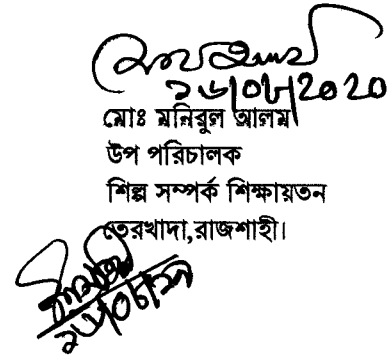 ১৬/০৮/2020
মোঃ মনিরুল আলম
উপ পরিচালক
শিল্প সম্পর্ক শিক্ষায়তন
তেরখাদা,রাজশাহী।